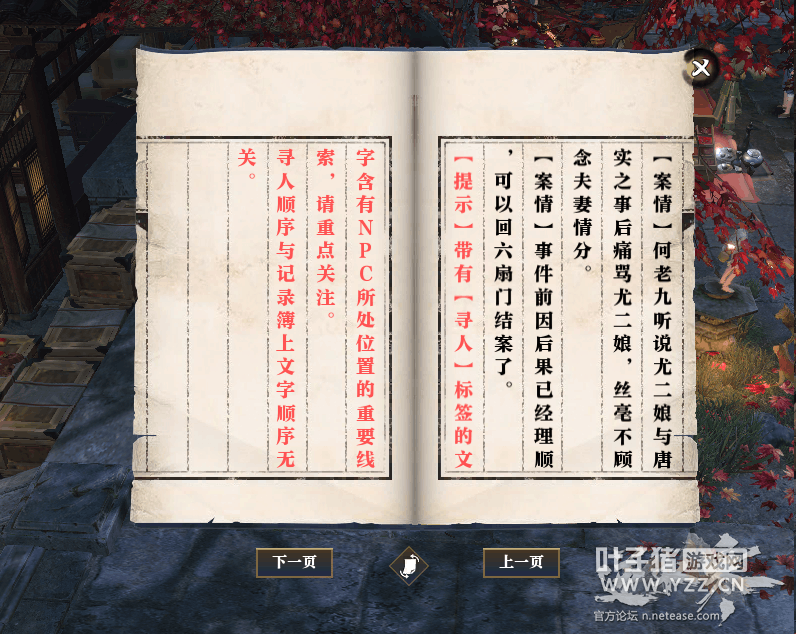 【案情】何老九听说尤二娘与唐
实之事后痛骂尤二娘，丝毫不顾
念夫妻情分。
【案情】事件前因后果已经理顺
，可以回六扇门结案了。
【提示】带有【寻人】标签的文
字含有NPC所处位置的重要线
索，请重点关注。
寻人顺序与记录簿上文字顺序无
关。
下一页
上一页
叶子猪游戏网
WWW.YZZ.CN
官方论坛 n.netease.com